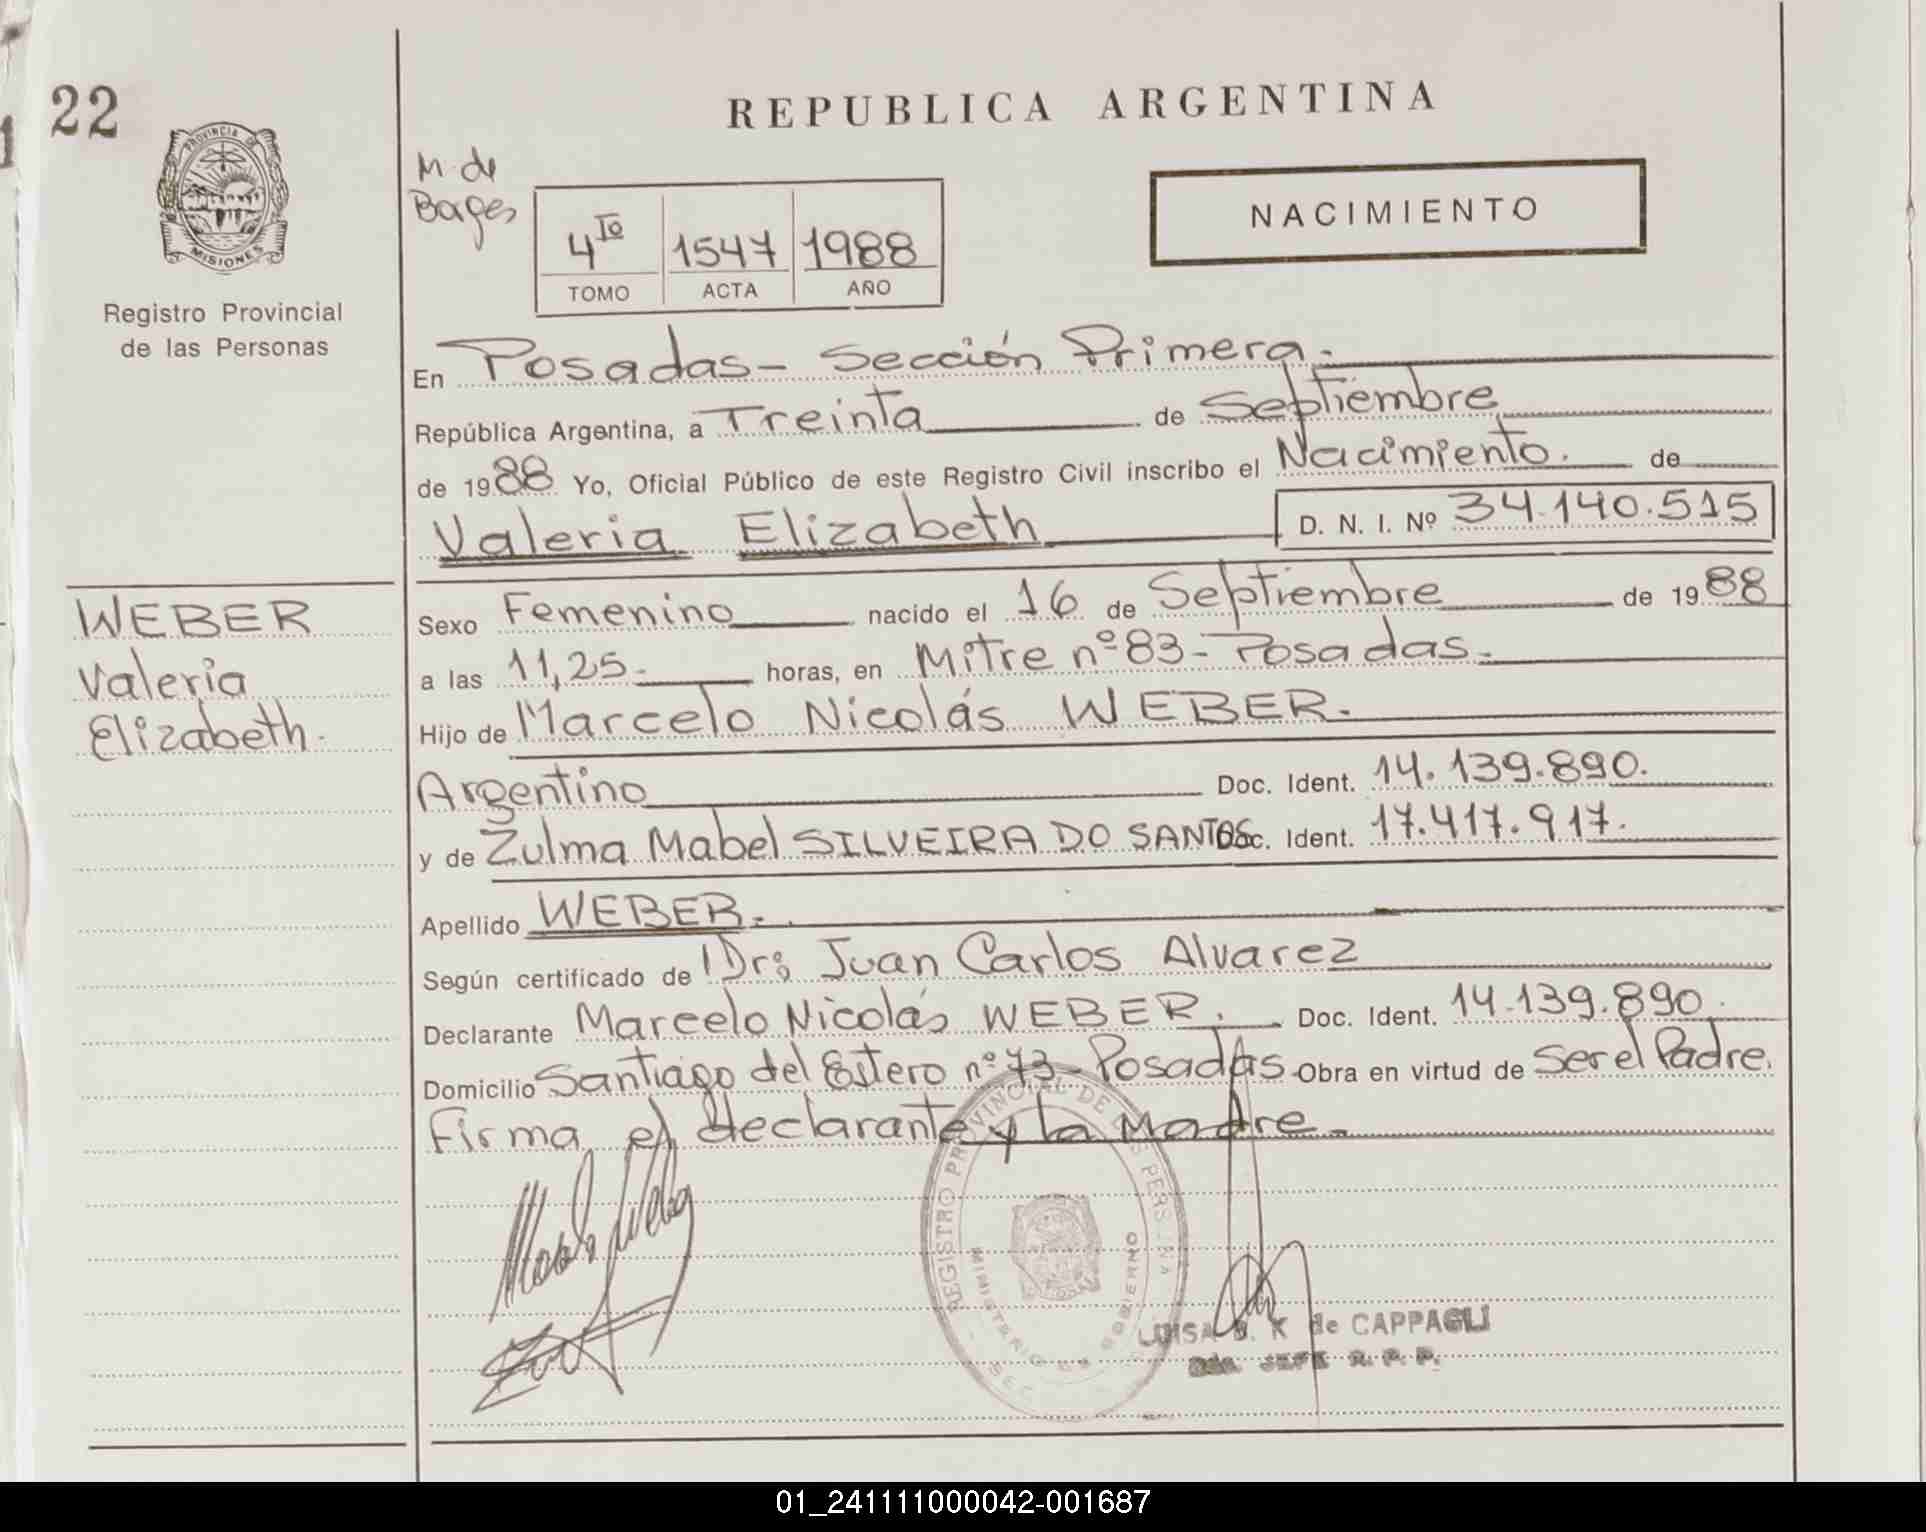 22
REPUBLICA ARGENTINA
PROVINCIA DE
MISIONES
Registro Provincial
de las Personas
M. de
Bages
4to 1547 1988
TOMO ACTA AÑO
NACIMIENTO
En Posadas - Sección Primera.
República Argentina, a Treinta de Septiembre
de 1988 Yo, Oficial Público de este Registro Civil inscribo el Nacimiento. de
Valeria Elizabeth D. N. I. Nº 34.140.515
WEBER
Valeria
Elizabeth.
Sexo Femenino nacido el 16 de Septiembre de 1988
a las 11,25. horas, en Mitre nº 83 - Posadas.
Hijo de Marcelo Nicolás WEBER.
Argentino Doc. Ident. 14.139.890.
y de Zulma Mabel SILVEIRA DO SANTOS Doc. Ident. 17.417.917.
Apellido WEBER.
Según certificado de Dr: Juan Carlos Alvarez
Declarante Marcelo Nicolás WEBER. Doc. Ident. 14.139.890.
Domicilio Santiago del Estero nº 73 - Posadas Obra en virtud de Ser el Padre.
Firma el declarante y la Madre.
REGISTRO PROVINCIAL DE
MINISTERIO DE GOBIERNO
LUISA K de CAPPAGLI
JEFE R. P. P.
01_241111000042-001687